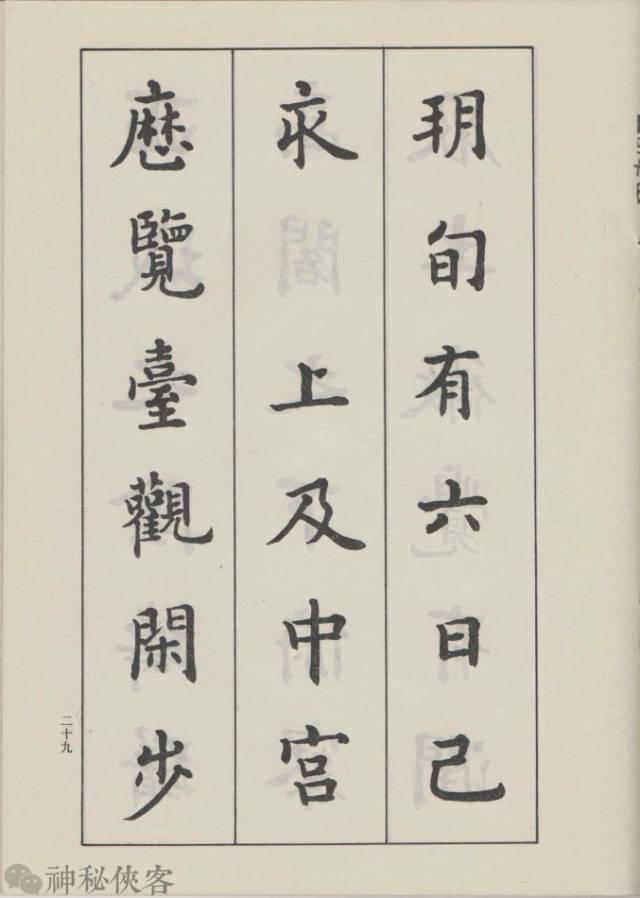 朔旬有六日己
亥上及中宮
歷覽臺觀閑步
二十九
神秘俠客